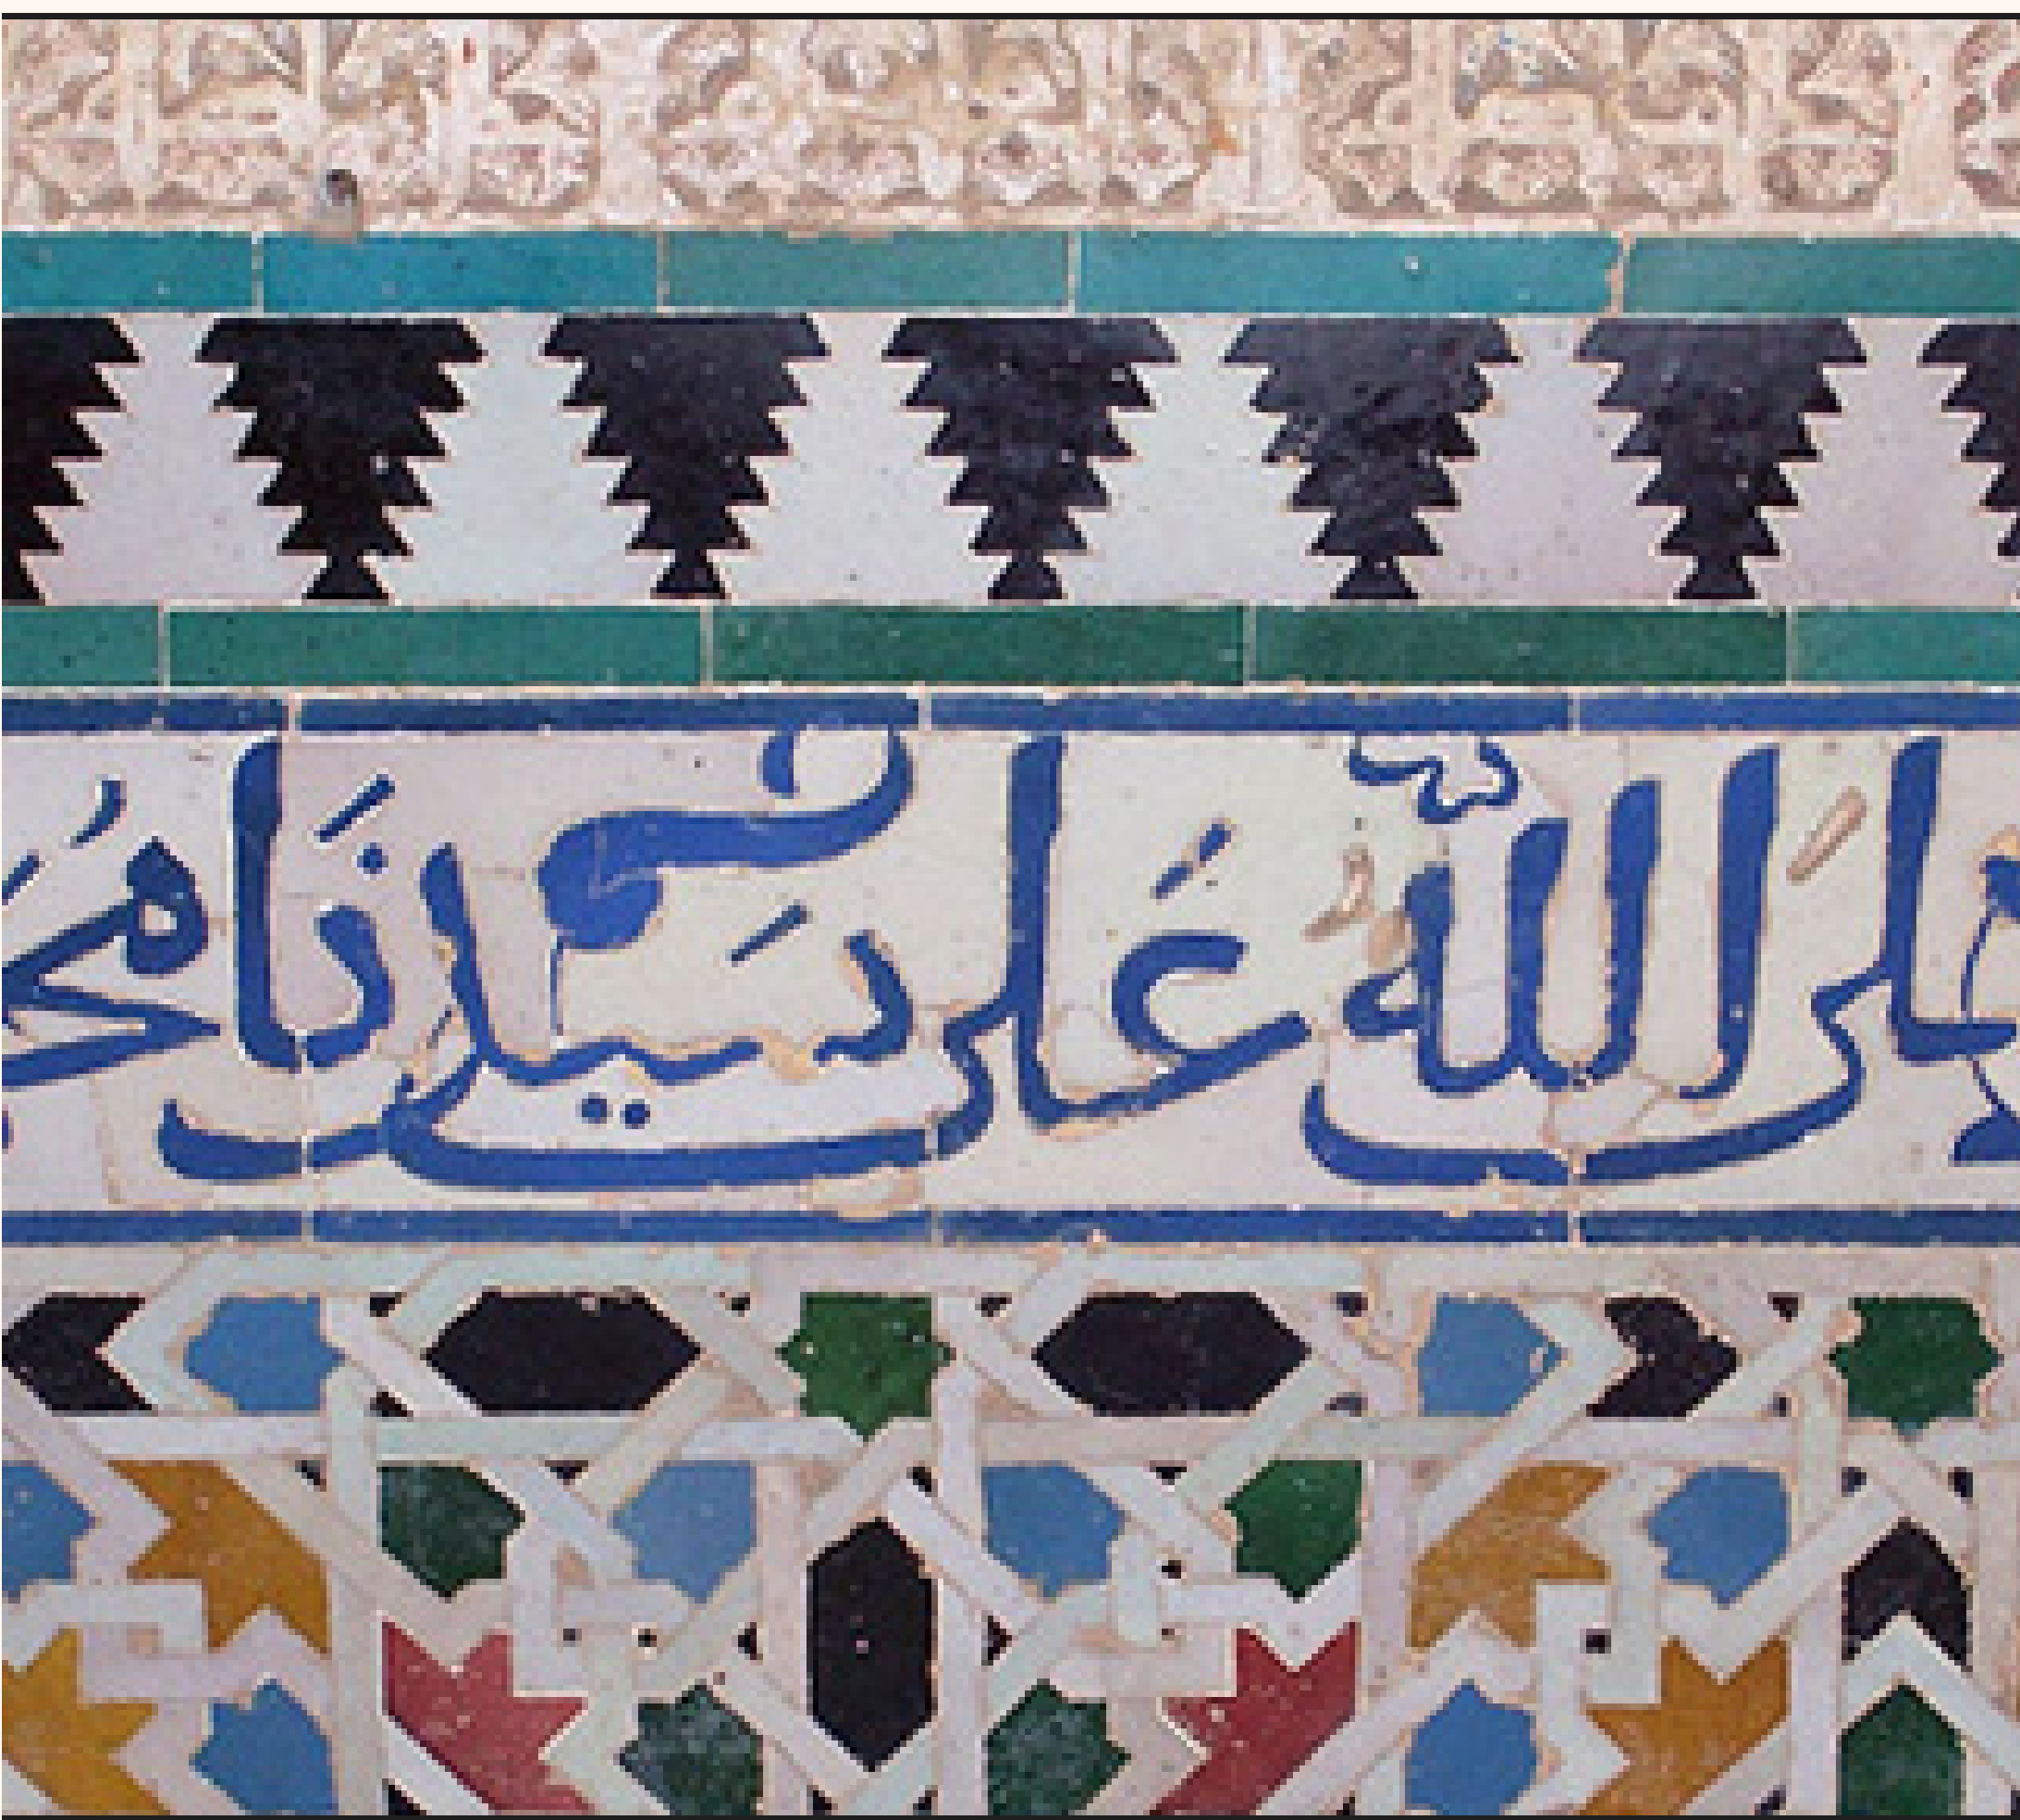 صلى الله على سيدنا محمد